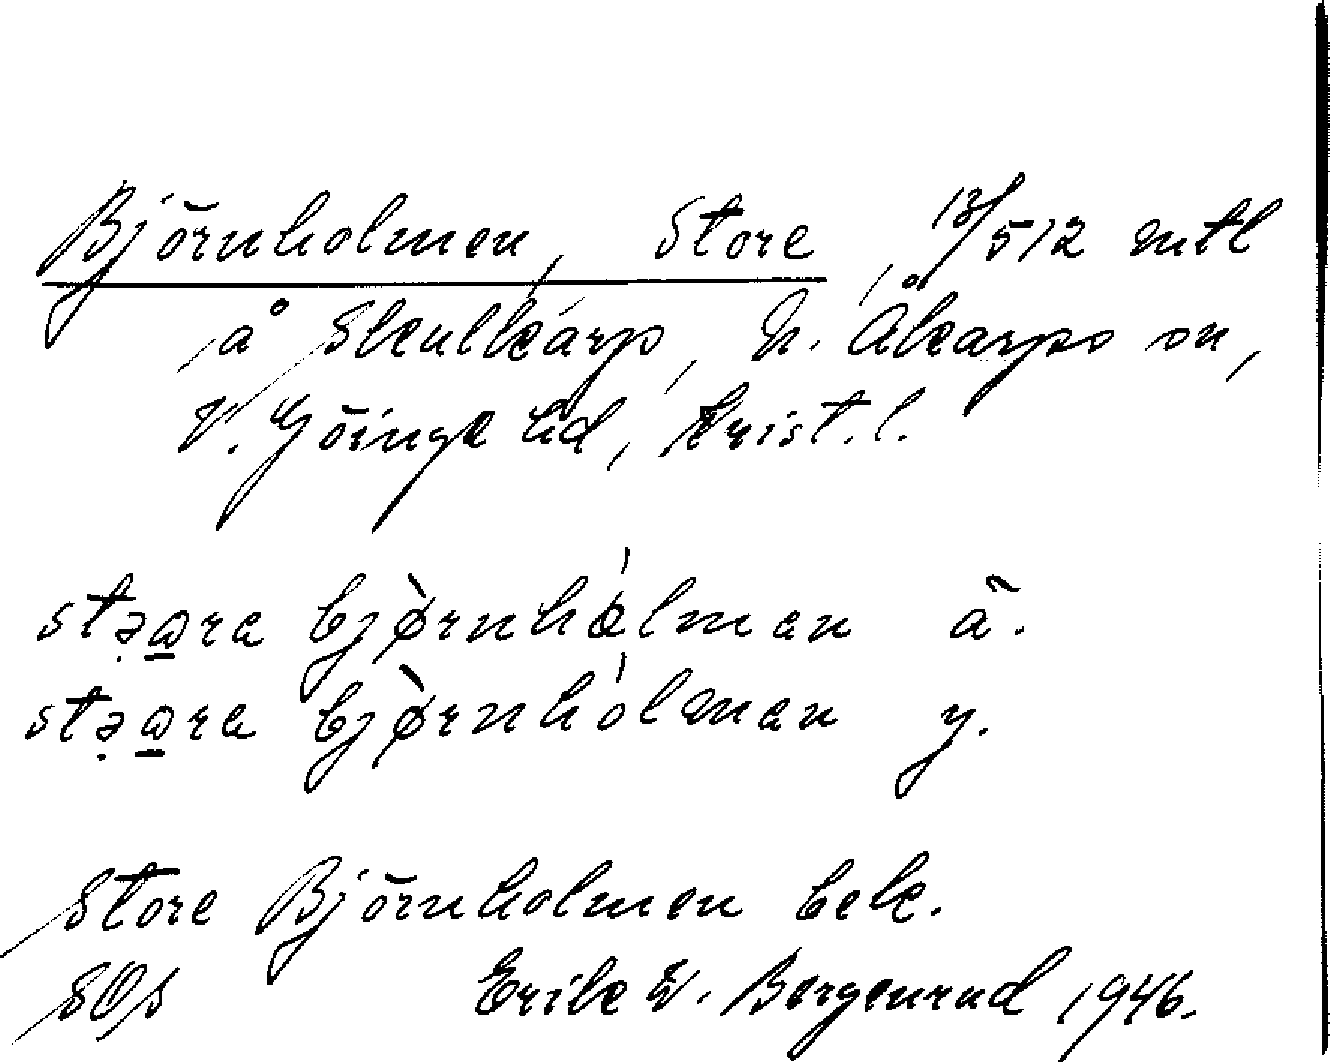 Björnholmen, Store, 13/512 mtl
å Skulkarp, N. Åkarps sn,
V. Göinge hd, Krist. l.
stə̣ω̱ra bjø̀rnhólman ä.
stə̣ω̱ra bjø̀rnhólman y.
Store Björnholmen bek.
SOs Erik W. Bergenrud 1946.